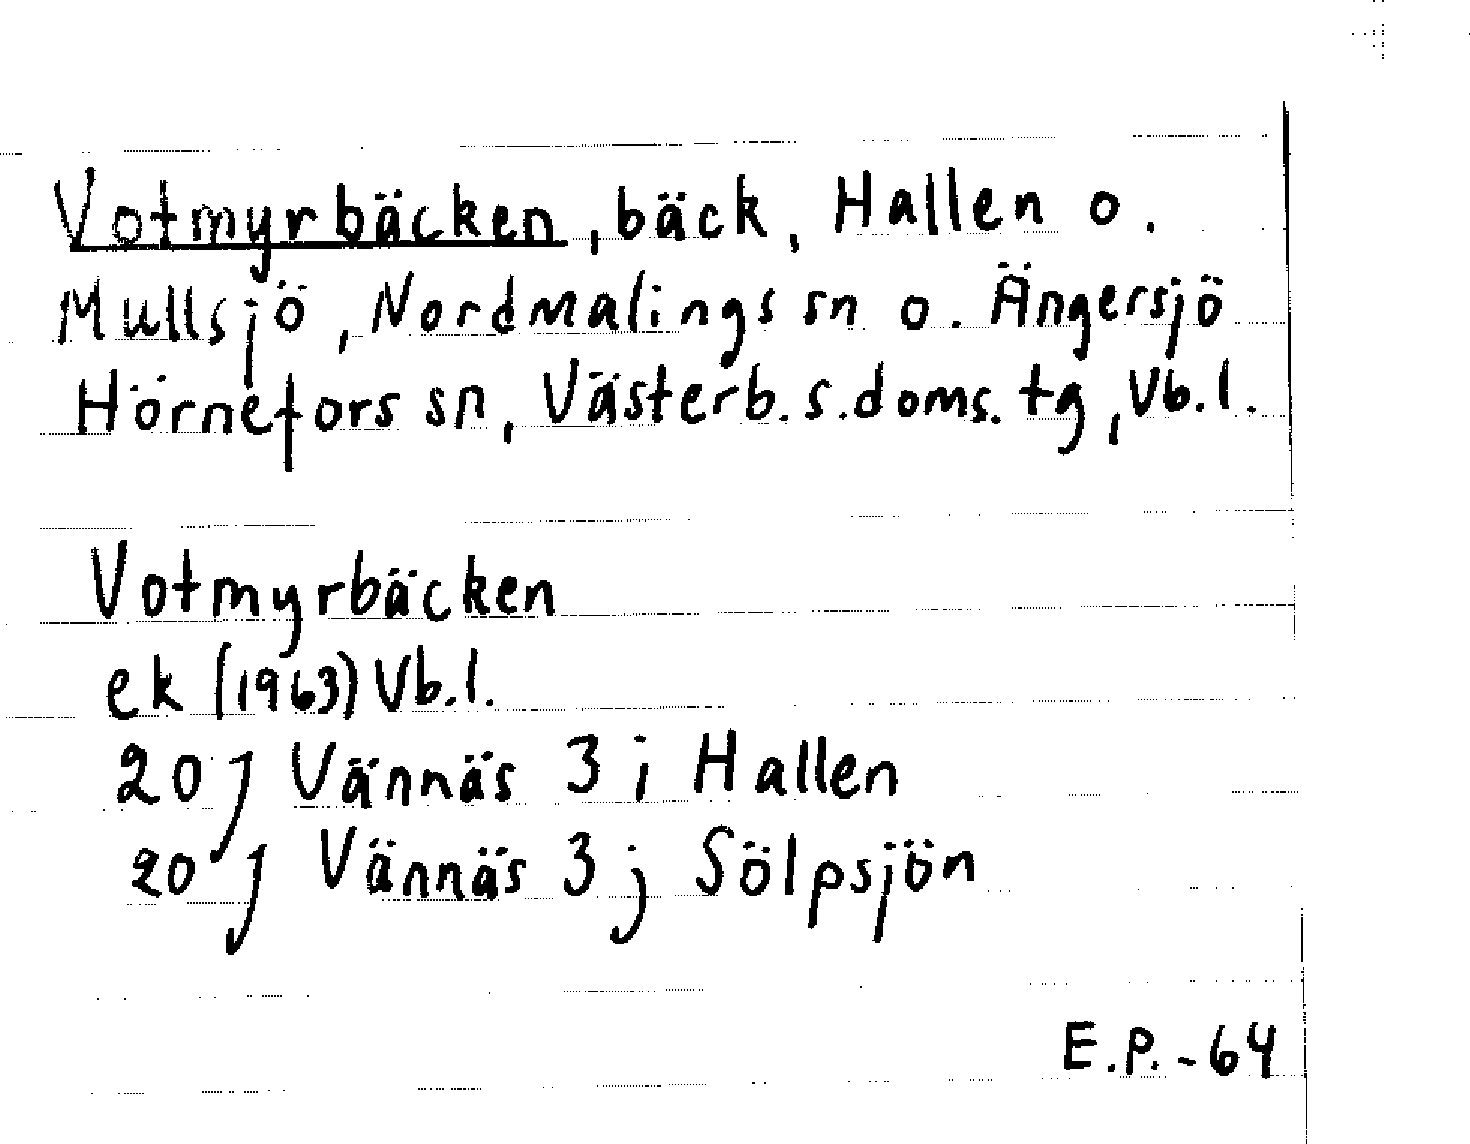 Votmyrbäcken, bäck, Hallen o.
Mullsjö, Nordmalings sn o. Ängersjö
Hörnefors sn, Västerb. s. doms. tg, Vb.l.
Votmyrbäcken
ek (1963) Vb.l.
20 J Vännäs 3 i Hallen
20 J Vännäs 3 j Sölpsjön
E.P.-64